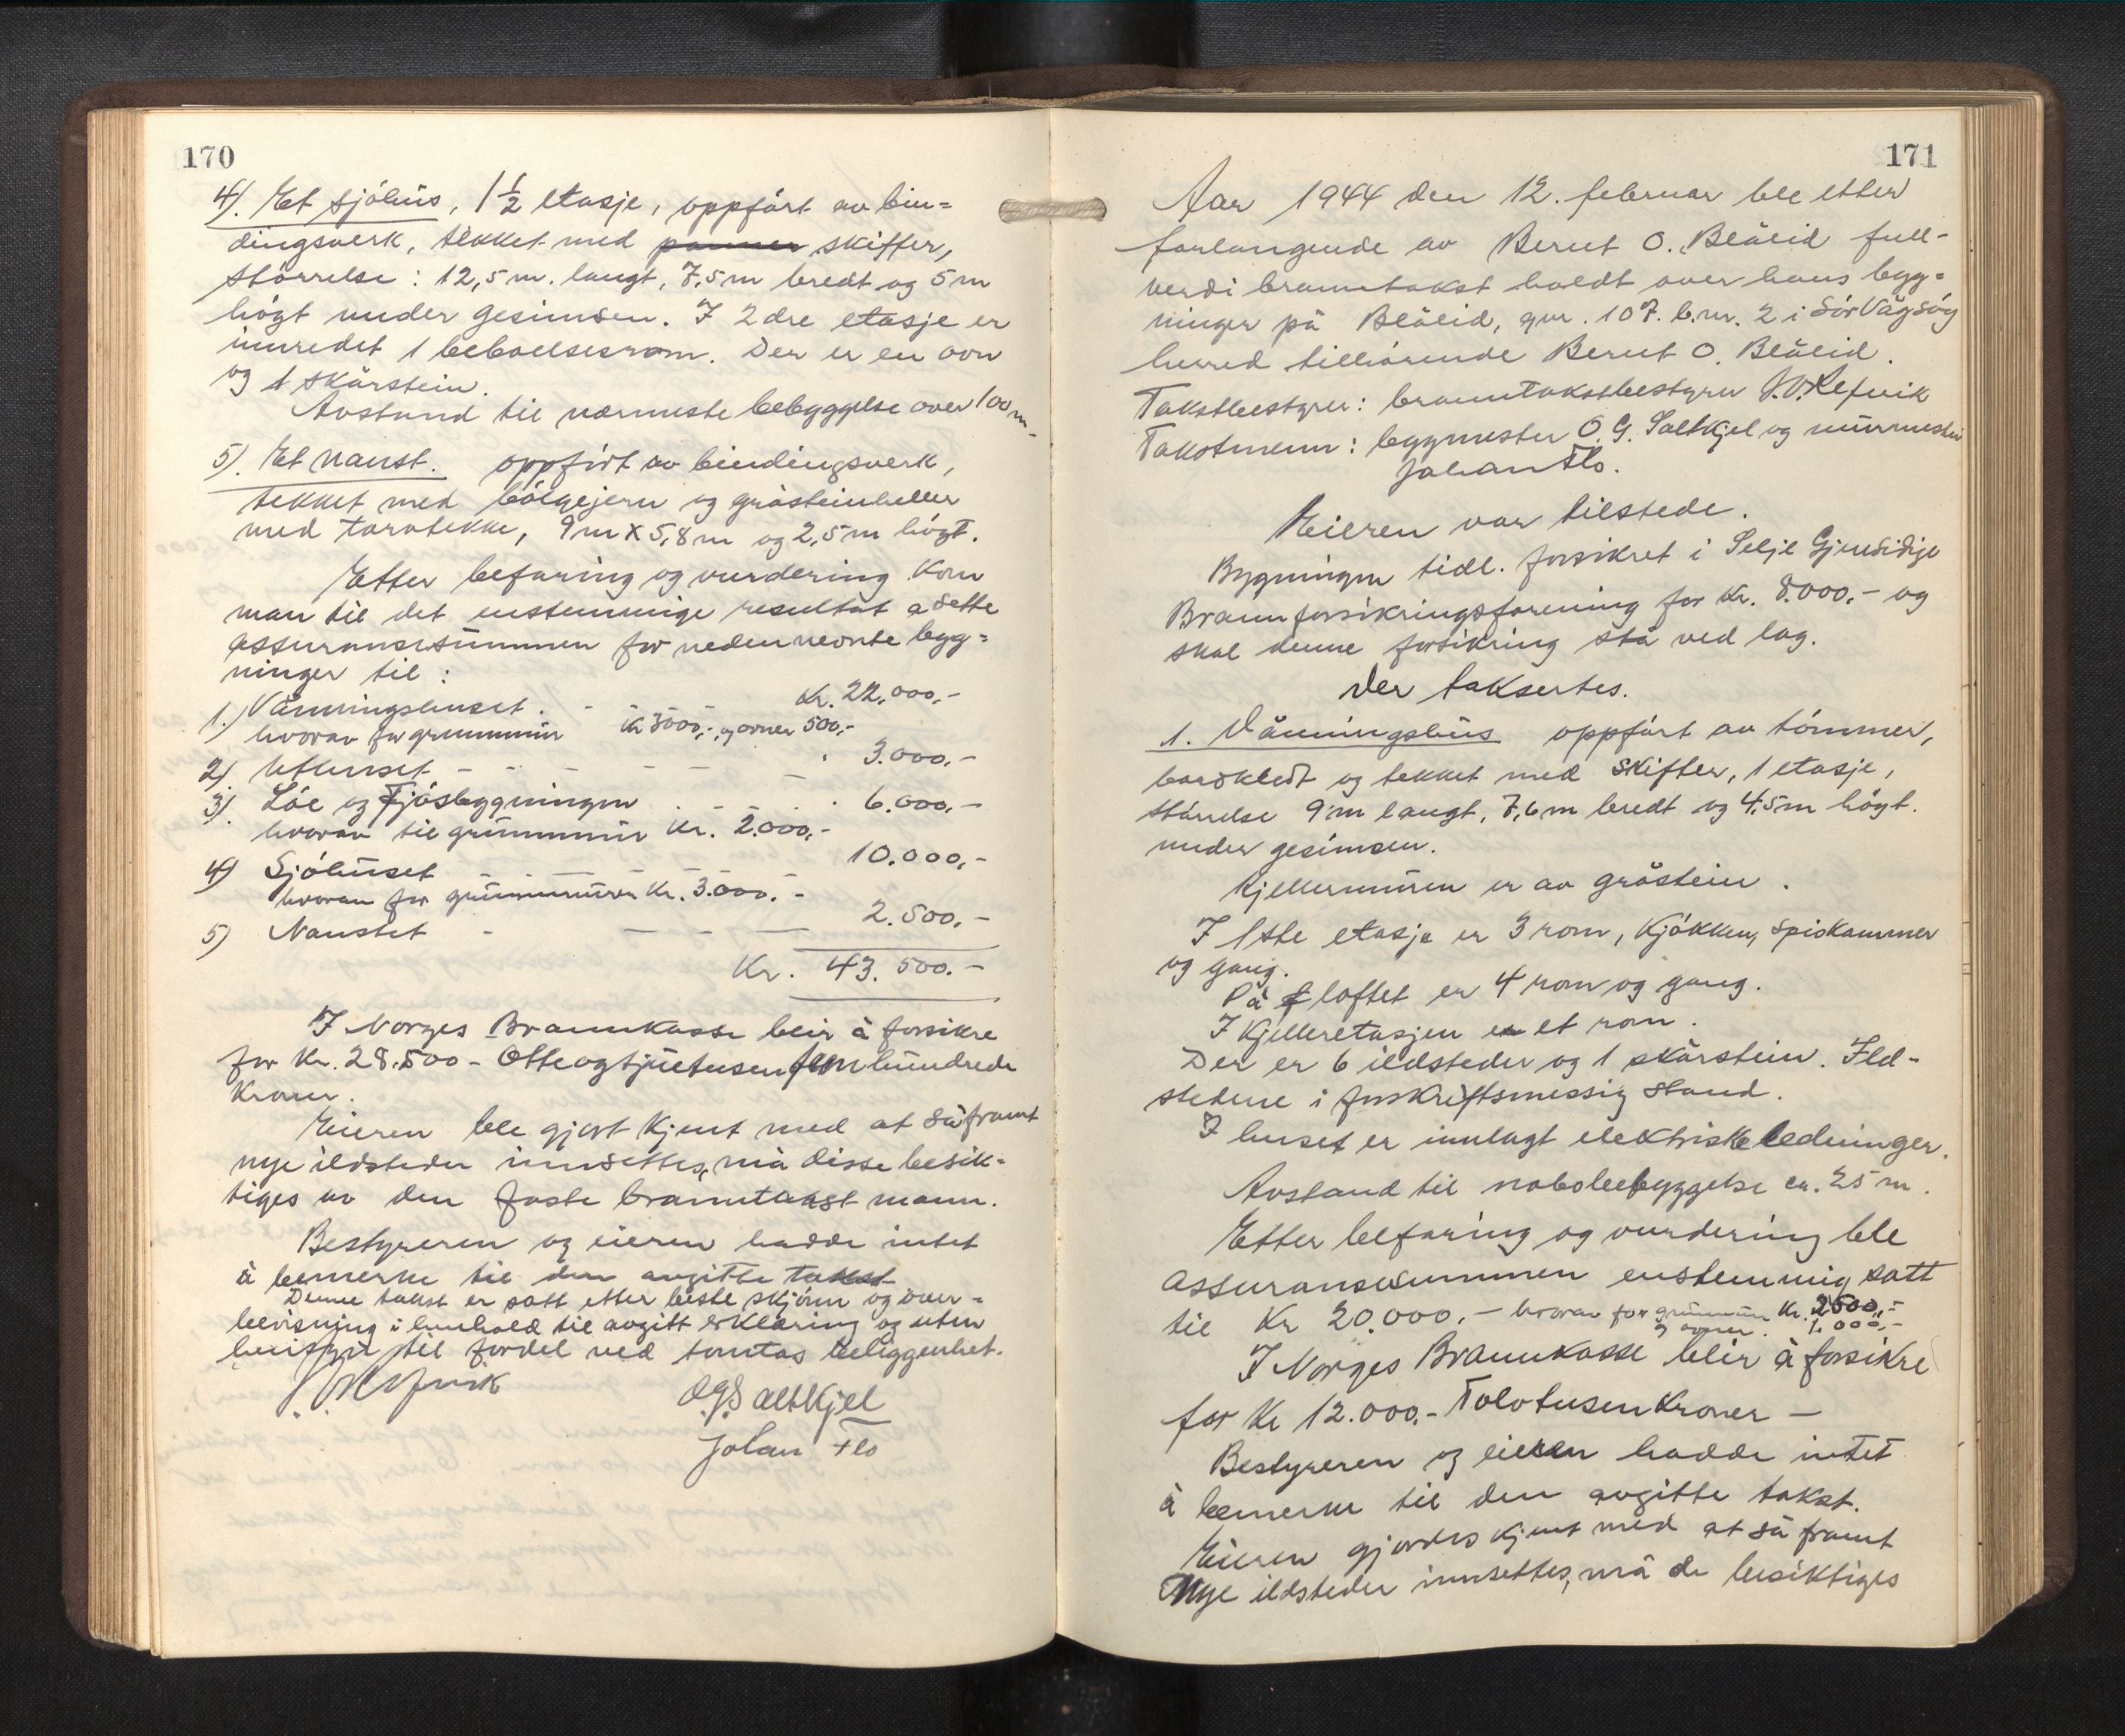 170
4). Et sjöhus, 1 1/2 etasje, oppfört av bin=
dingsverk, tekket med panner skiffer,
störrelse: 12,5 m. langt, 7,5 m bredt og 5 m
högt under gesimsen. I 2dre etasje er
innredet 1 beboelsesrom. Der er en ovn
og 1 skårstein.
Avstand til nærmeste bebyggelse over 100 m.
5). Et naust. oppfört av bindingsverk,
tekket med bölgejern og gråsteinheller
med torvtekke, 9 m x 5,8 m og 2,5 m högt.
Etter befaring og vurdering kom
man til det enstemmige resultat a sette
assuransesummen for nedennevnte byg=
ninger til:
1.) Våningshuset. - Kr. 22.000,-
hvorav for grunnmur kr 3000,- og ovner 500,-
2) Uthuset - - - - - 3.000,-
3) Löe og Fjösbygningen - - - 6.000,-
hvorav til grunnmur kr. 2.000,-
4) Sjöhuset - - - 10.000,-
hvorav for grunnmuren Kr. 3.000.-
5) Naustet - - - - 2.500,-
Kr. 43.500.-
I Norges Brannkasse blir å forsikre
for Kr. 28.500 - Otteogtjuetusenfemhundrede
Kroner.
Eieren ble gjort kjent med at såframt
nye ildsteder innsettes, må disse besik-
tiges av den faste branntakstmann.
Bestyreren og eieren hadde intet
å bemerke til den avgitte takst
Denne takst er satt etter beste skjönn og over=
bevisning i henhold til avgitt erklæring og uten
hensyn til fordel ved tomtas beliggenhet.
J. O. Refvik
O G Saltkjel
Johan Flo
171
Aar 1944 den 12. februar ble etter
forlangende av Berut O. Blålid full-
verdi branntakst holdt over hans byg=
ninger på Blålid, gnr. 107. b.nr. 2 i Sör Vågsöy
herred tilhörende Berut O. Blålid.
Takstbestyrer: branntakstbestyrer J. O. Refvik
Takstmenn: byggmester O. G. Saltkjel og murmester
Johan Flo.
Eieren var tilstede.
Bygningen tidl. forsikret i Selje Gjensidige
Brannforsikringsforening for Kr. 8.000,- og
skal denne forsikring stå ved lag.
Der taksertes.
1. Våningshus oppfört av tömmer,
bordkledt og tekket med skiffer, 1 etasje,
störrelse 9 m langt, 7,6 m bredt og 4,5 m högt.
under gesimsen.
Kjellermuren er av gråstein.
I 1ste etasje er 3 rom, kjökken, spiskammer
og gang.
På loftet er 4 rom og gang.
I Kjelleretasjen er et rom.
Der er 6 ildsteder og 1 skårstein. Ild-
stedene i forskriftsmessig stand.
I huset er innlagt elektriske ledninger.
Avstand til nabobebyggelse ca. 25 m.
Etter befaring og vurdering ble
assuransesummen enstemmig satt
til Kr 20.000.- hvorav for grunnmur Kr. 2500,-
og ovner. 1.000,-
I Norges Brannkasse blir å forsikre
for Kr 12.000,- Tolvtusen Kroner -
Bestyreren og eieren hadde intet
å bemerke til den avgitte takst.
Eieren gjordes kjent med at så framt
Nye ildsteder innsettes, må de besiktiges